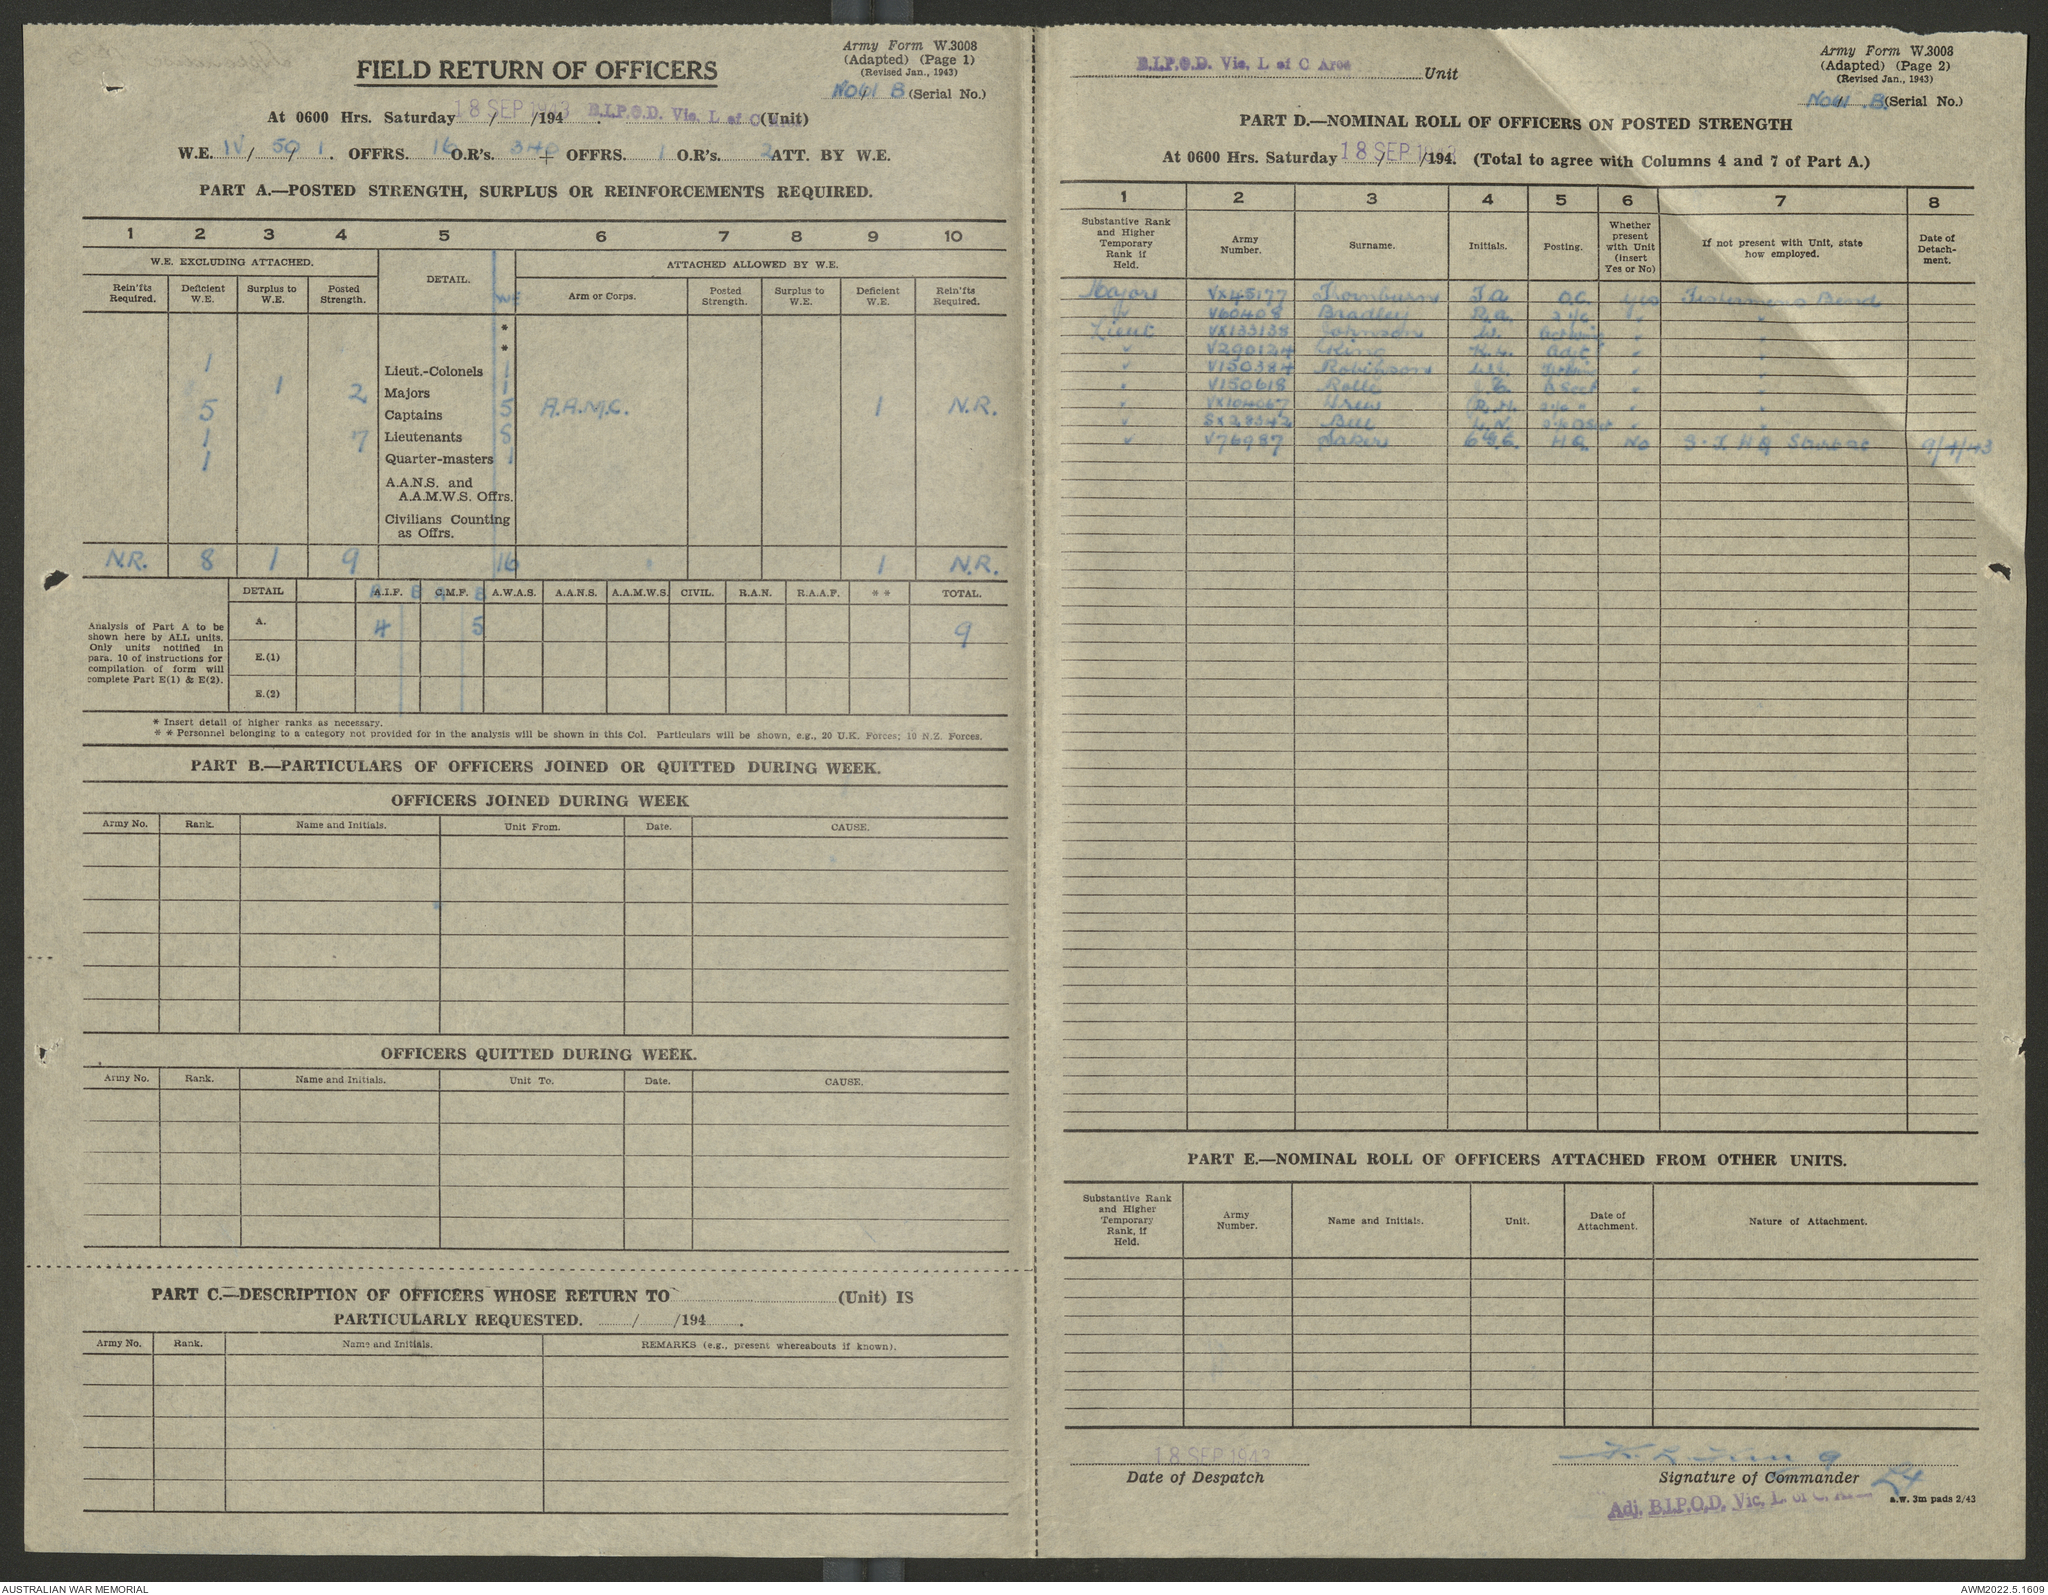 Army Form W.3008
(Adapted) (Page 1)
(Revised Jan., 1943)
FIELD RETURN OF OFFICERS
No 61 B (Serial No.)
At 0600 Hrs. Saturday 18 SEP 1943 / /194 . B.I.P.O.D. Vic. L of C Area (Unit)
W.E. IV / 50 / 1 . OFFRS. 16 O.R's. 340 + OFFRS. 1 O.R's. 2 ATT. BY W.E.
PART A.—POSTED STRENGTH, SURPLUS OR REINFORCEMENTS REQUIRED.
1 2 3 4 5 6 7 8 9 10
W.E. EXCLUDING ATTACHED. DETAIL. ATTACHED ALLOWED BY W.E.
Rein'fts Required. Deficient W.E. Surplus to W.E. Posted Strength. WE Arm or Corps. Posted Strength. Surplus to W.E. Deficient W.E. Rein'fts Required.
*
*
1 Lieut.-Colonels 1
1 2 Majors 1
5 Captains 5 A.A.M.C. 1 N.R.
1 7 Lieutenants 8
1 Quarter-masters 1
A.A.N.S. and
A.A.M.W.S. Offrs.
Civilians Counting
as Offrs.
N.R. 8 1 9 16 1 N.R.
DETAIL A.I.F. B C.M.F. B A.W.A.S. A.A.N.S. A.A.M.W.S. CIVIL. R.A.N. R.A.A.F. * * TOTAL.
Analysis of Part A to be
shown here by ALL units.
Only units notified in
para. 10 of instructions for
compilation of form will
complete Part E(1) & E(2).
A. 4 5 9
E.(1)
E.(2)
* Insert detail of higher ranks as necessary.
* * Personnel belonging to a category not provided for in the analysis will be shown in this Col. Particulars will be shown, e.g., 20 U.K. Forces; 10 N.Z. Forces.
PART B.—PARTICULARS OF OFFICERS JOINED OR QUITTED DURING WEEK.
OFFICERS JOINED DURING WEEK
Army No. Rank. Name and Initials. Unit From. Date. CAUSE.
OFFICERS QUITTED DURING WEEK.
Army No. Rank. Name and Initials. Unit To. Date. CAUSE.
PART C.—DESCRIPTION OF OFFICERS WHOSE RETURN TO (Unit) IS
PARTICULARLY REQUESTED. / /194 .
Army No. Rank. Name and Initials. REMARKS (e.g., present whereabouts if known).
Army Form W.3008
(Adapted) (Page 2)
(Revised Jan., 1943)
B.I.P.O.D. Vic. L of C Area Unit
No 61 B. (Serial No.)
PART D.—NOMINAL ROLL OF OFFICERS ON POSTED STRENGTH
At 0600 Hrs. Saturday 18 SEP 1943 / /194. (Total to agree with Columns 4 and 7 of Part A.)
1 2 3 4 5 6 7 8
Substantive Rank and Higher Temporary Rank if Held. Army Number. Surname. Initials. Posting. Whether present with Unit (insert Yes or No) If not present with Unit, state how employed. Date of Detach-ment.
Major VX45177 Thornburn J.A O.C. Yes Fishermens Bend
" V60408 Bradley R.A. 2 i/c " "
Lieut VX133138 Johnson W. " "
" V290124 King K.L. Adjt " "
" V150384 Robinson " "
" V150618 Rolle " "
" VX104067 Drew R.H. " "
" SX28342 Bill L.N. " "
" V76987 Baker G.E. HQ No HQ 9/4/43
PART E.—NOMINAL ROLL OF OFFICERS ATTACHED FROM OTHER UNITS.
Substantive Rank and Higher Temporary Rank, if Held. Army Number. Name and Initials. Unit. Date of Attachment. Nature of Attachment.
18 SEP 1943
Date of Despatch
K L King Lt
Signature of Commander
Adj. B.I.P.O.D. Vic. L. of C.
a.w. 3m pads 2/43
AUSTRALIAN WAR MEMORIAL
AWM2022.5.1609